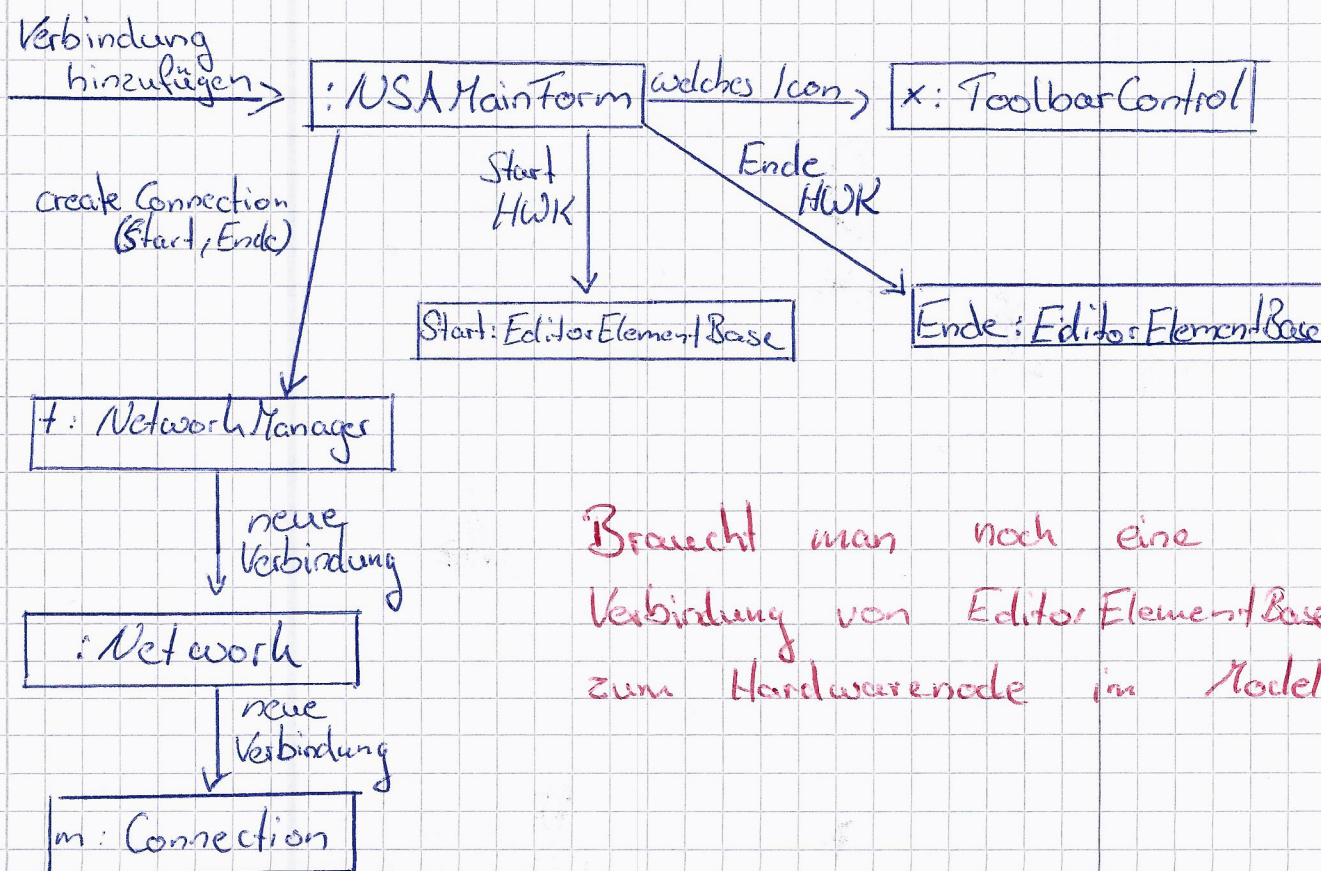 Verbindung
hinzufügen
:NSAMainForm
welches Icon
x: ToolbarControl
create Connection
(Start, Ende)
Start
HWK
Ende
HWK
Start:EditorElementBase
Ende:EditorElementBase
t: NetworkManager
neue
Verbindung
:Network
neue
Verbindung
m: Connection
Braucht man noch eine
Verbindung von EditorElementBase
zum Hardwarenode im Model